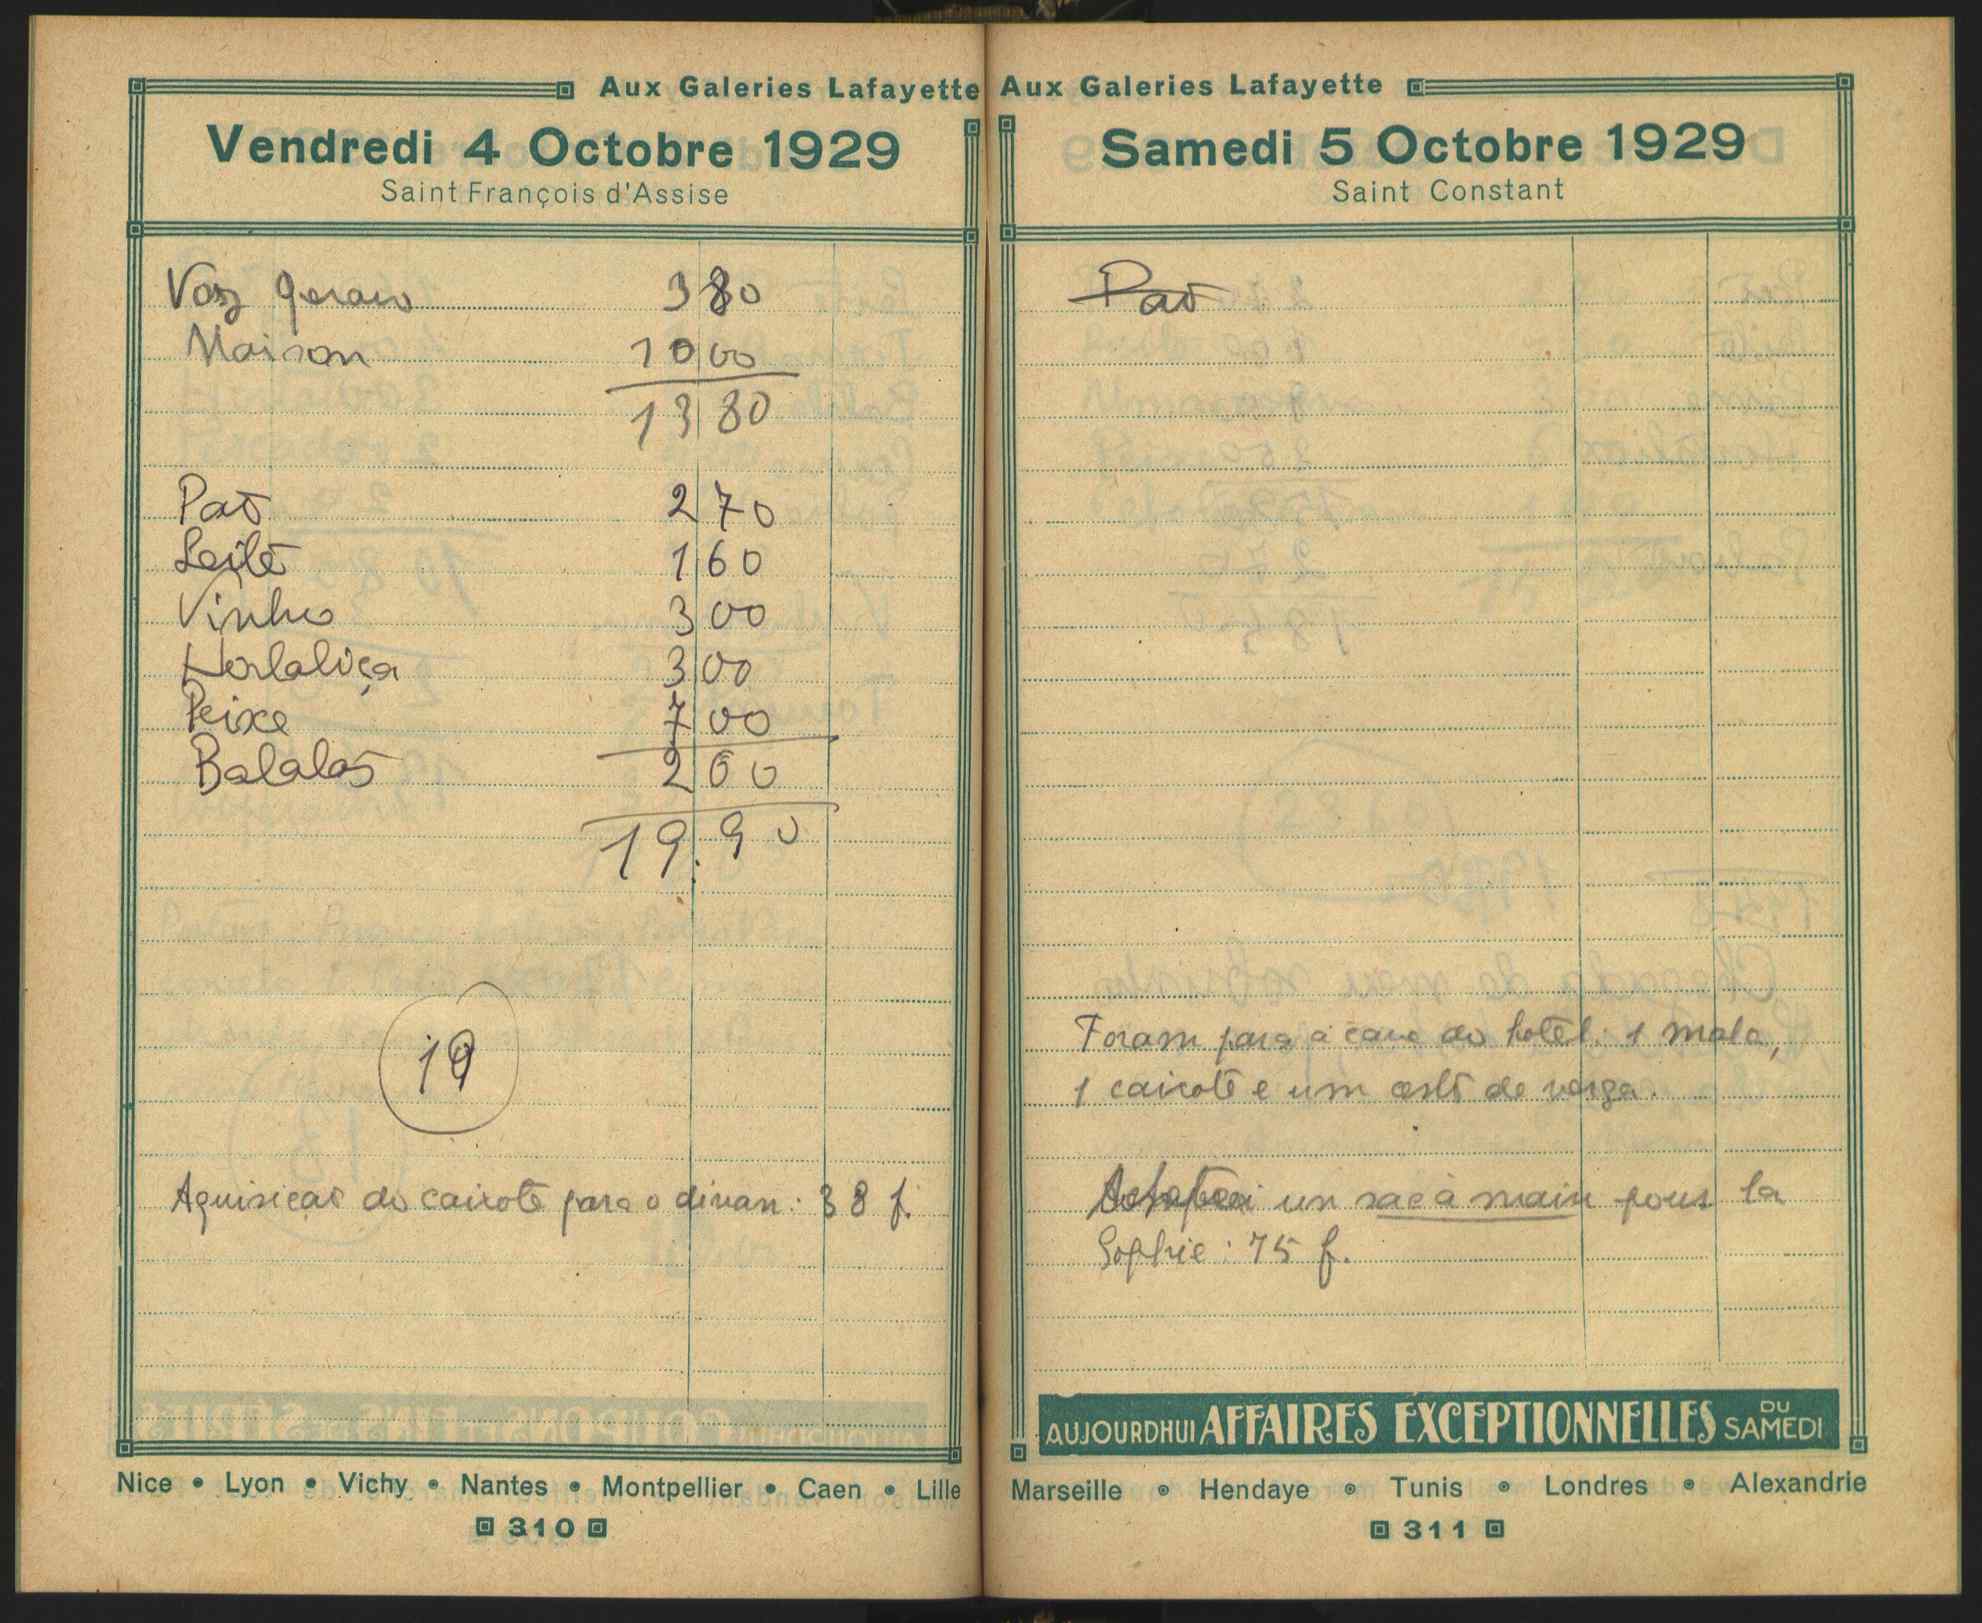 Aux Galeries Lafayette
Vendredi 4 Octobre 1929
Saint François d'Assise
geraes 380
Maison 10 00
13 80
Pao 2 70
Leite 1 60
Vinho 3 00
Hortaliça 3 00
Peixe 7 00
Batatas 2 00
19.90
19
Aquisicao do caixote para o divan: 38 f.
Nice • Lyon • Vichy • Nantes • Montpellier • Caen • Lille
310
Aux Galeries Lafayette
Samedi 5 Octobre 1929
Saint Constant
Pao
Foram para a cave do hotel: 1 mala,
1 caixote e um cesto de verga.
un sac à main pour la
Sophie: 75 f.
AUJOURDHUI AFFAIRES EXCEPTIONNELLES DU SAMEDI
Marseille • Hendaye • Tunis • Londres • Alexandrie
311